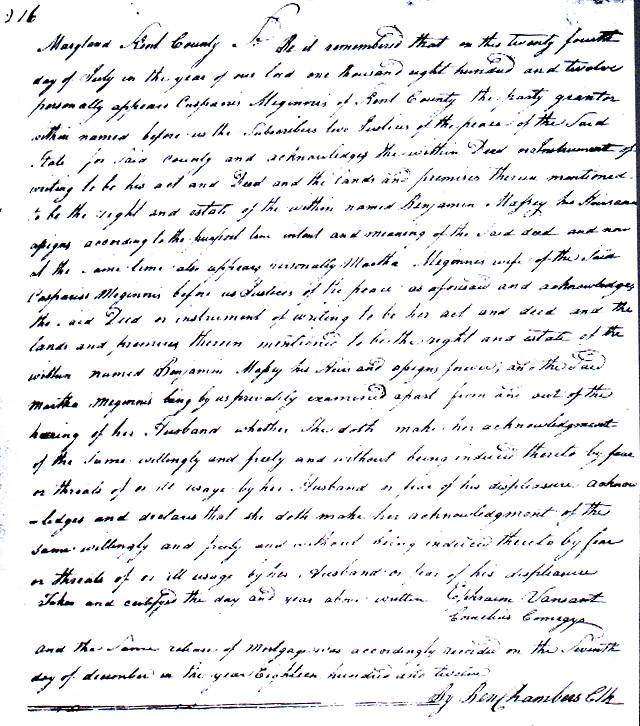 216
Maryland Kent County Sc. Be it remembered that on this twenty fourth
day of July in the year of our Lord one thousand eight hundred and twelve
personally appears Casparus Meginnis of Kent County the party grantor
within named before us the Subscribers two Justices of the peace of the Said
State for Said County and acknowledges the within Deed or Instrument of
writing to be his act and Deed and the lands and premises therein mentioned
to be the right and estate of the within named Benjamin Massey his Heirs and
assigns according to the purport true intent and meaning of the Said deed and now
at the Same time also appears personally Martha Meginnis wife of the Said
Casparus Meginnis before us Justices of the peace as aforesaid and acknowledges
the Said Deed or instrument of writing to be her act and deed and the
lands and premises therein mentioned to be the right and estate of the
within named Benjamin Massey his Heirs and assigns forever, and the Said
Martha Meginnis being by us privately examined apart from and out of the
hearing of her Husband whether She doth make her acknowledgment
of the Same willingly and freely and without being induced thereto by fear
or threats of or ill usage by her Husband or fear of his displeasure acknow
-ledges and declares that she doth make her acknowledgment of the
same willingly and freely and without being induced thereto by fear
or threats of or ill usage by her Husband or fear of his displeasure
Taken and certifyd the day and year above written Ephraim Vansant
Cornelius Comegys
And the Same release of Mortgage was accordingly recorded on the Seventh
day of december in the year Eighteen hundred and twelve
By Ben Chambers Clk